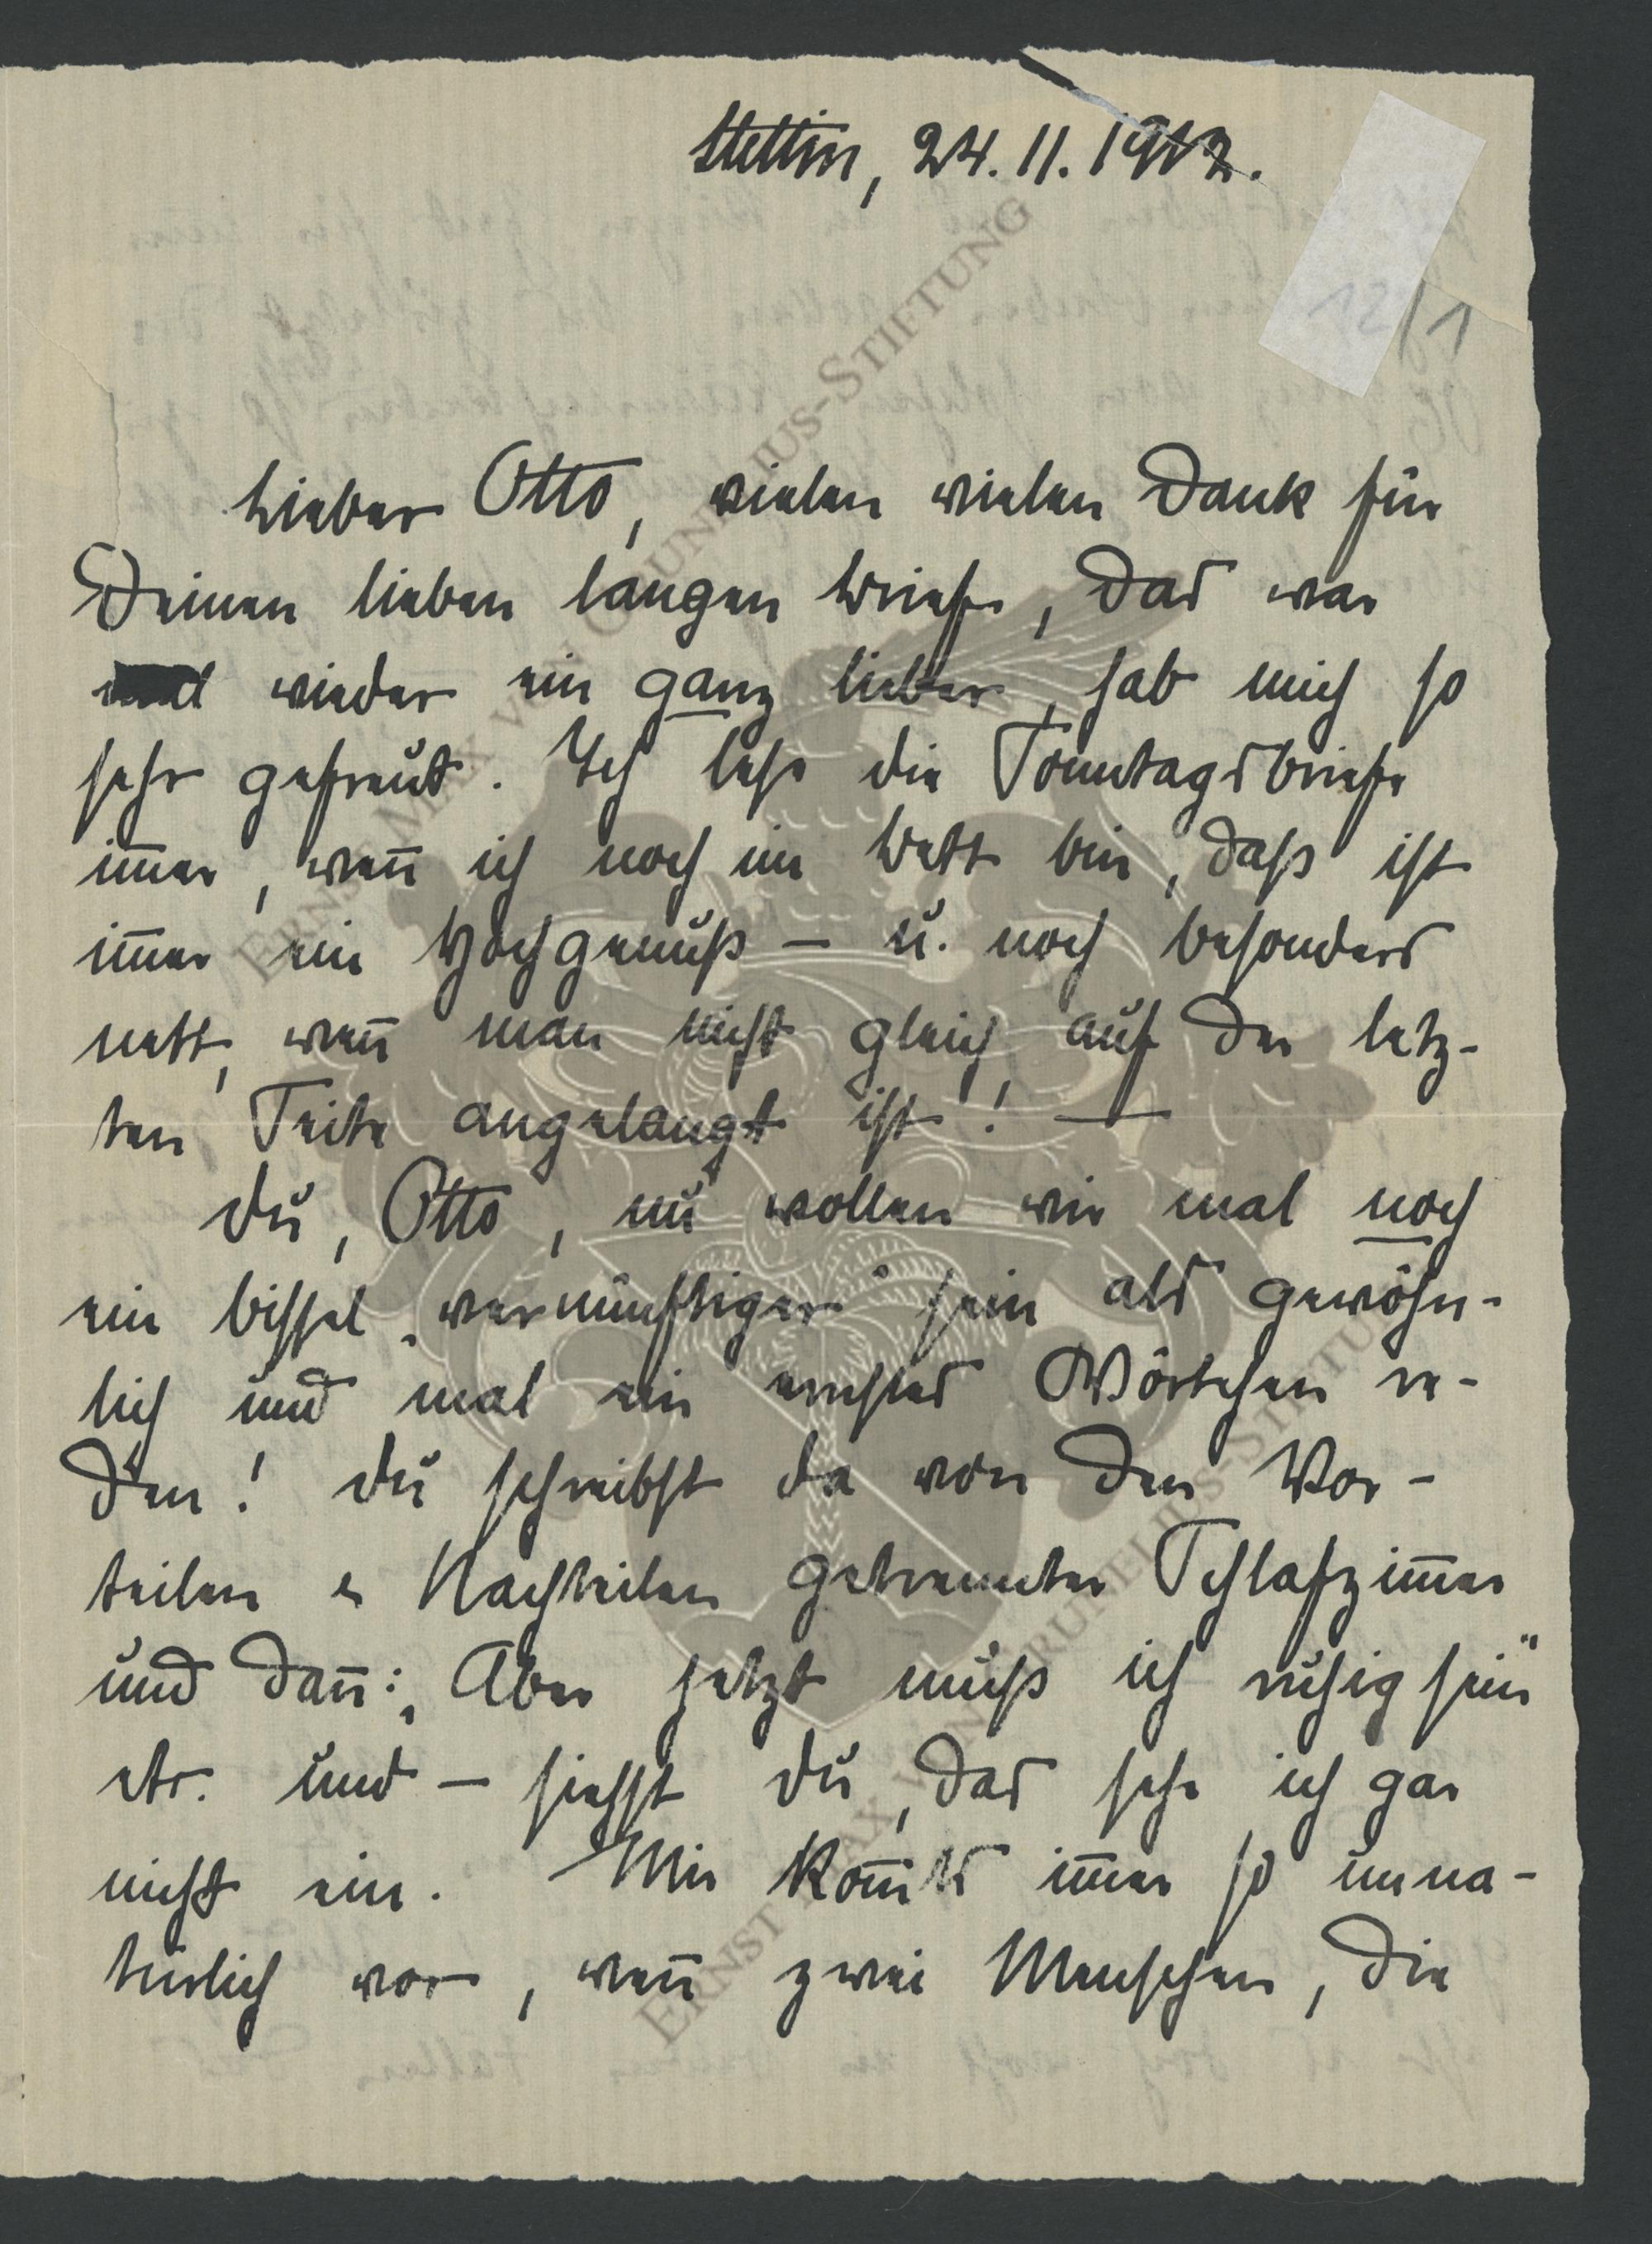 Stettin, 24.11.1912.
12/1
Lieber Otto, vielen vielen Dank für
Deinen lieben langen Brief, das war
mal wieder ein ganz lieber, hab mich so
sehr gefreut. Ich lese die Sonntagsbriefe
im̄er, wen̄ ich noch im Bett bin, daß ist
im̄er ein Hochgenuß – u. noch besonders
nett, wen̄ man nicht gleich auf der letz-
ten Seite angelangt ist! —
Du, Otto, nu wollen wir mal noch
ein bissel „vernünftiger" sein als gewöhn-
lich und mal ein ernstes Wörtchen re-
den! Du schreibst da von den Vor-
teilen & Nachteilen getrennter Schlafzim̄er
und dan̄: „Aber jetzt muß ich ruhig sein"
etc. und – siehst Du, das sehe ich gar
nicht ein. Mir kom̄ts im̄er so unna-
türlich vor, wen̄ zwei Menschen, die
ERNST MAX VON GRUNELIUS-STIFTUNG
ERNST MAX VON GRUNELIUS-STIFTUNG